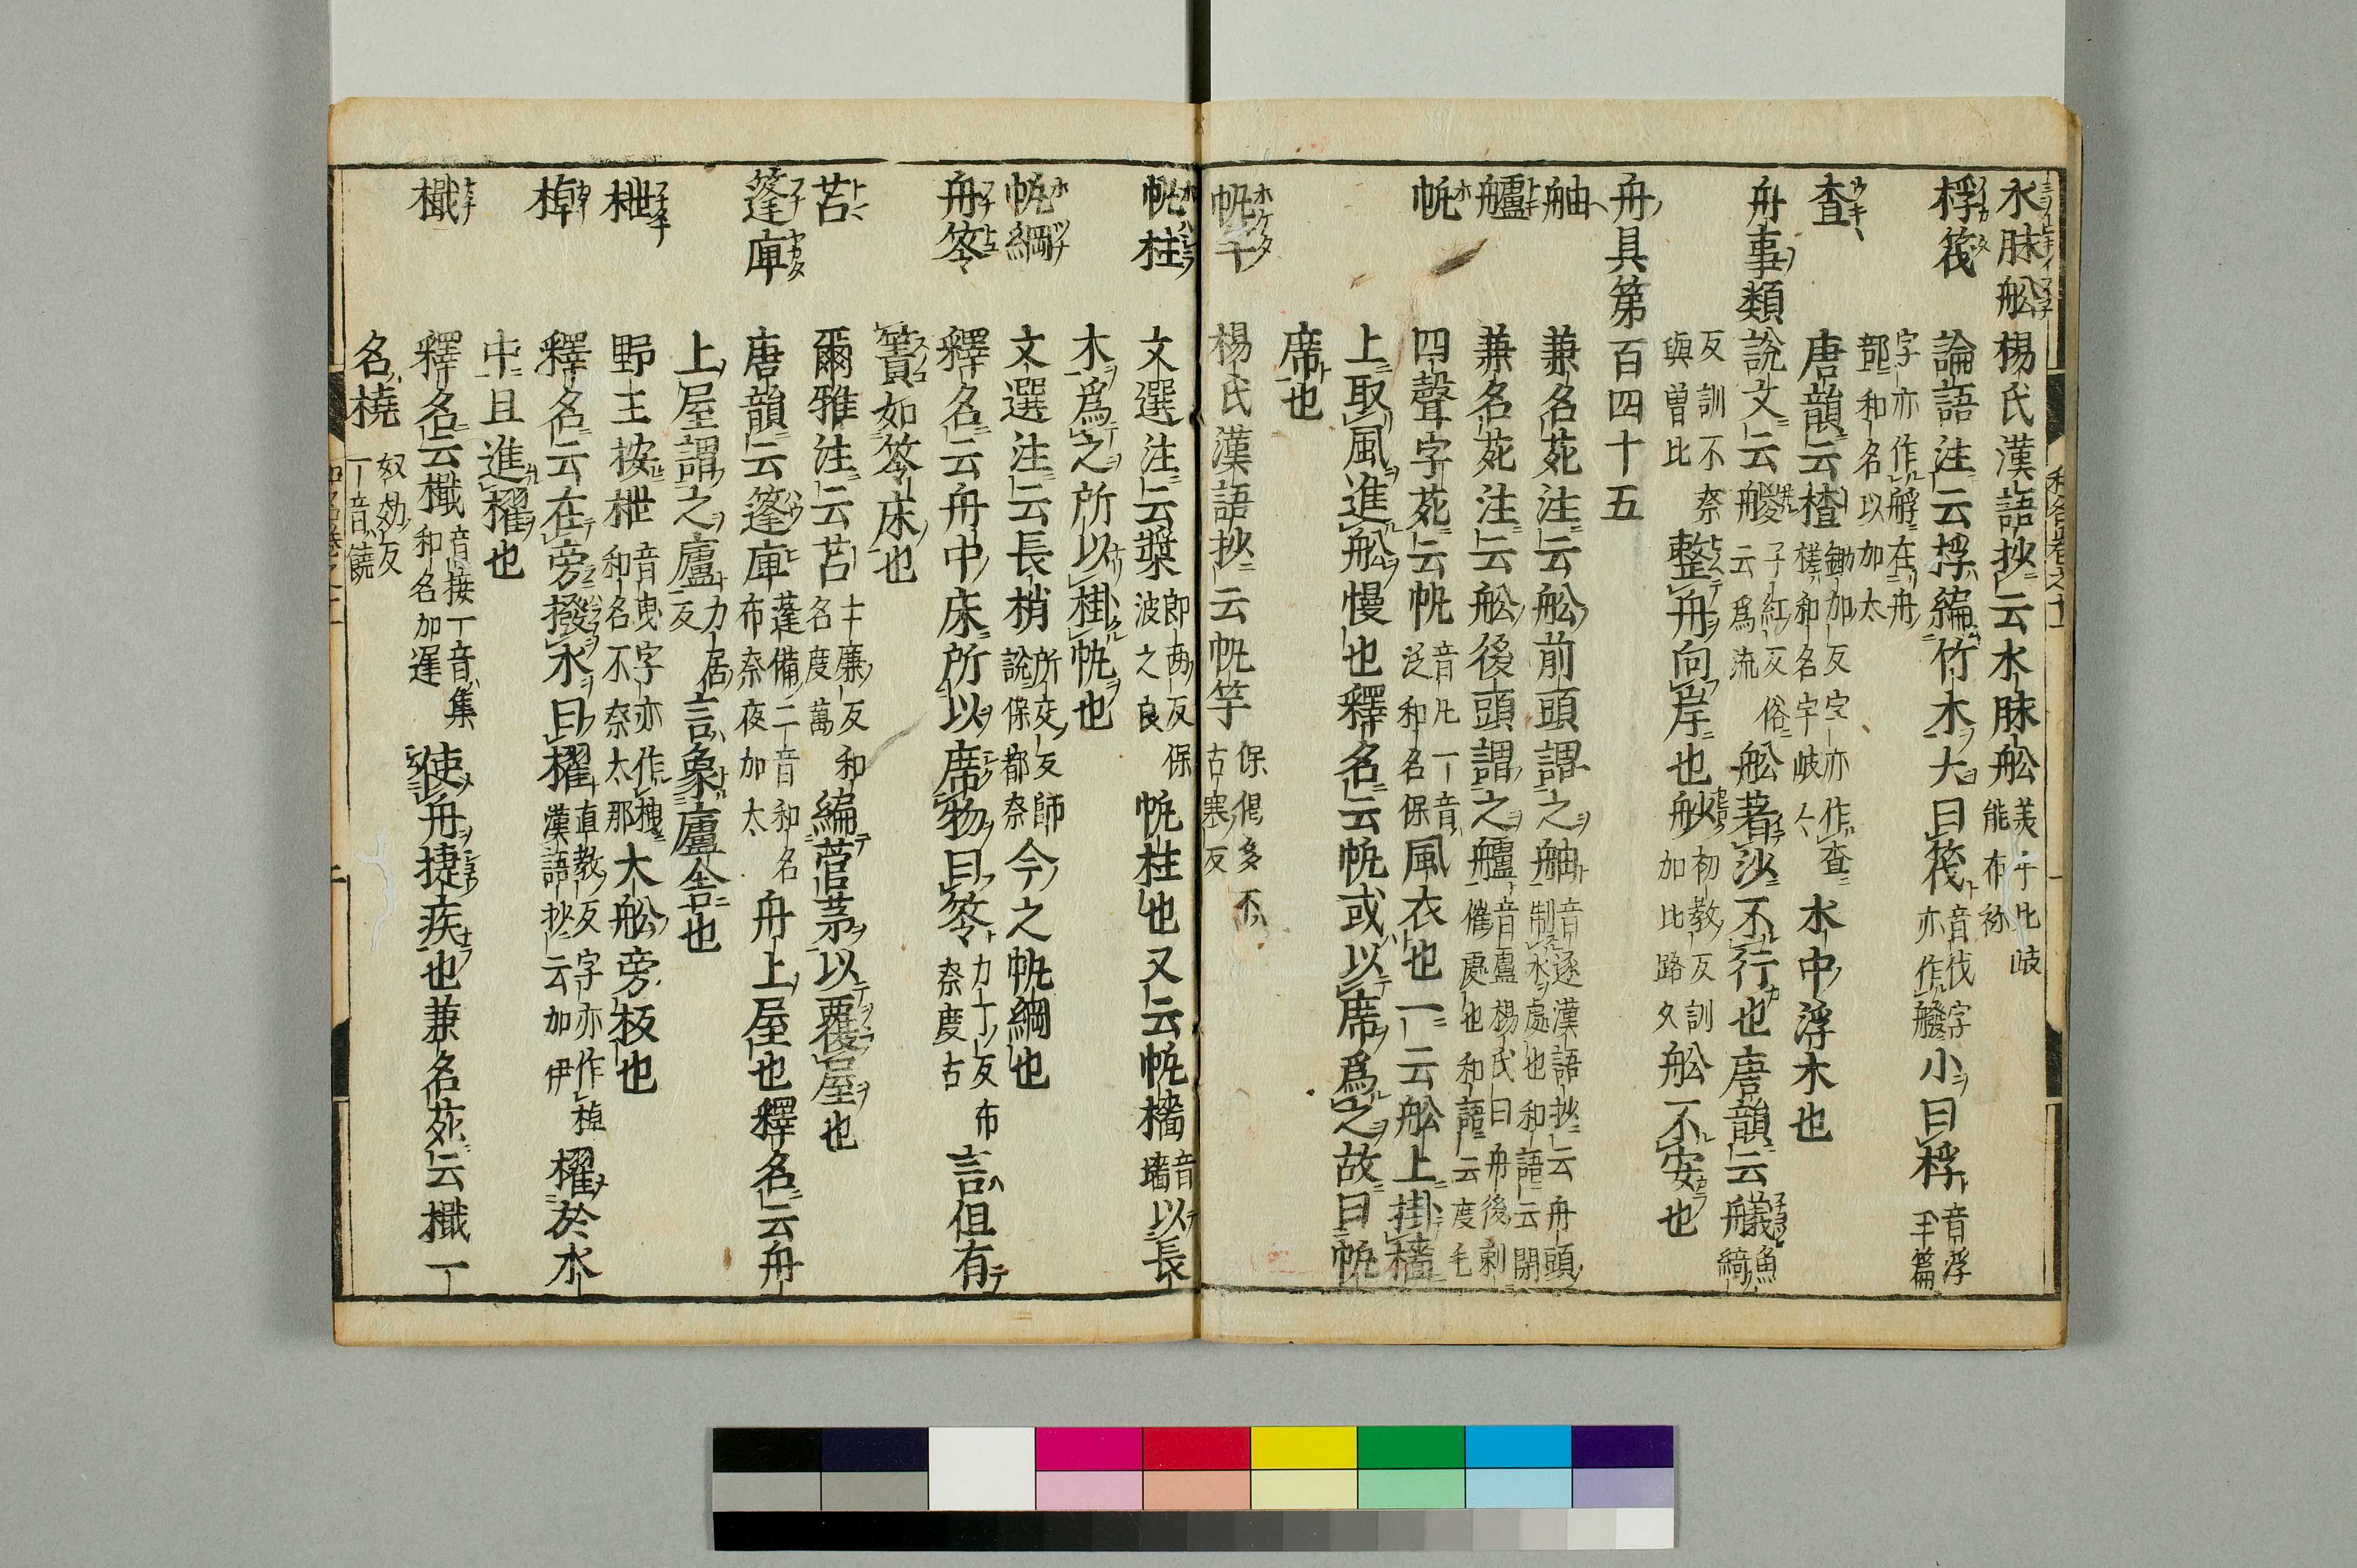 水脉舩 楊氏漢語抄云水脉舩 美乎比岐能布祢
桴筏 論語注云桴編竹木大曰筏 音伐字亦作𦪑 小曰桴 音浮玉篇
字亦作艀在舟部和名以加太
査 唐韻云楂 鋤加反字亦作査槎和名宇岐々 水中浮木也
舟事類 説文云艐 子紅反俗云為流 舩著沙不行也唐韻云艤 魚綺
反訓不奈與曽比 整舟向岸也 初教反訓加比路久 舩不安也
舟具第百四十五
舳 兼名苑注云舩前頭謂之舳 音逐漢語抄云舟頭制水處也和語云閉
艫 兼名苑注云舩後頭謂之艫 音盧楊氏曰舟後刺催處也和語云度毛
帆 四聲字苑云帆 音凡一音泛和名保 風衣也一云舩上掛檣
上取風進舩幔也釋名云帆或以席爲之故曰帆
席也
帆竿 楊氏漢語抄云帆竿 保偈多下古寒反
帆柱 文選注云槳 即両反保波之良 帆柱也又云帆檣 音墻 以長
木爲之所以掛帆也
帆綱 文選注云長梢 所交反師説保都奈 今之帆綱也
舟笭 釋名云舟中床所以席物曰笭 力丁反布奈度古 言但有
簀如笭床也
苫 爾雅注云苫 士廉反和名度萬 編菅茅以覆屋也
篷庫 唐韻云篷庫 蓬備二音和名布奈夜加太 舟上屋也釋名云舟
上屋謂之廬 力居反 言象廬舎也
枻 野王按枻 音曳字亦作㭨和名不奈太那 大舩旁板也
棹 釋名云在旁撥水曰櫂 直教反字亦作棹漢語抄云加伊 櫂於水
中且進櫂也
檝 釋名云檝 音接一音集和名加遅 使舟捷疾也兼名苑云檝一
名橈 奴効反一音饒